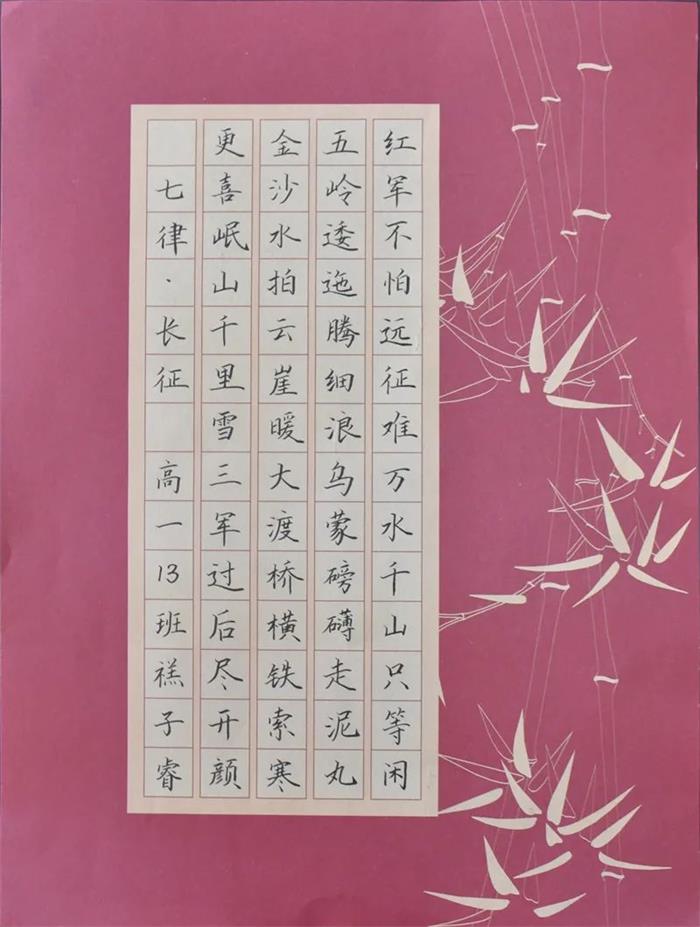 红军不怕远征难万水千山只等闲
五岭逶迤腾细浪乌蒙磅礴走泥丸
金沙水拍云崖暖大渡桥横铁索寒
更喜岷山千里雪三军过后尽开颜
七律·长征 高一13班禚子睿